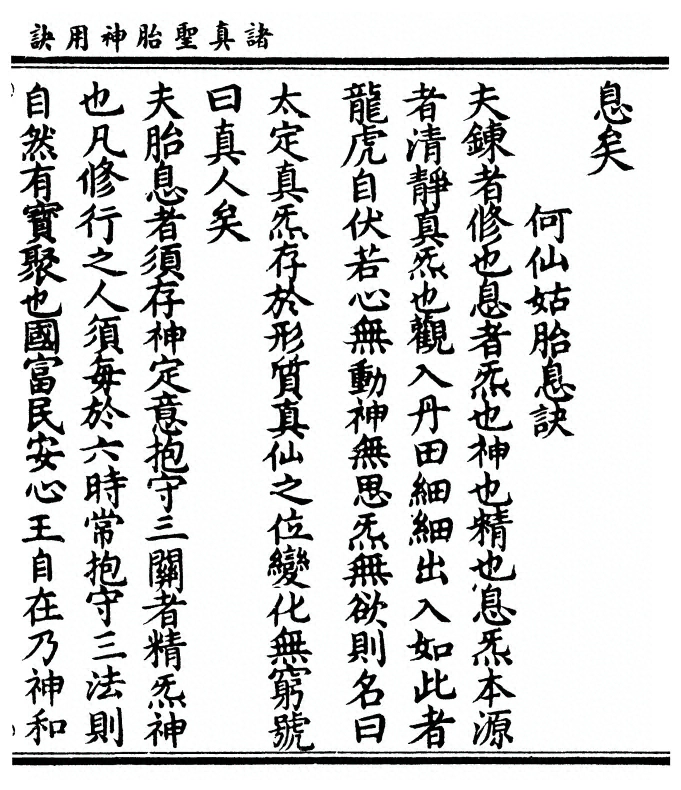 諸真聖胎神用訣
息矣
何仙姑胎息訣
夫鍊者修也息者炁也神也精也息炁本源
者清靜真炁也觀入丹田細細出入如此者
龍虎自伏若心無動神無思炁無欲則名曰
太定真炁存於形質真仙之位變化無窮號
曰真人矣
夫胎息者須存神定意抱守三關者精炁神
也凡修行之人須每於六時常抱守三法則
自然有寶聚也國富民安心王自在乃神和